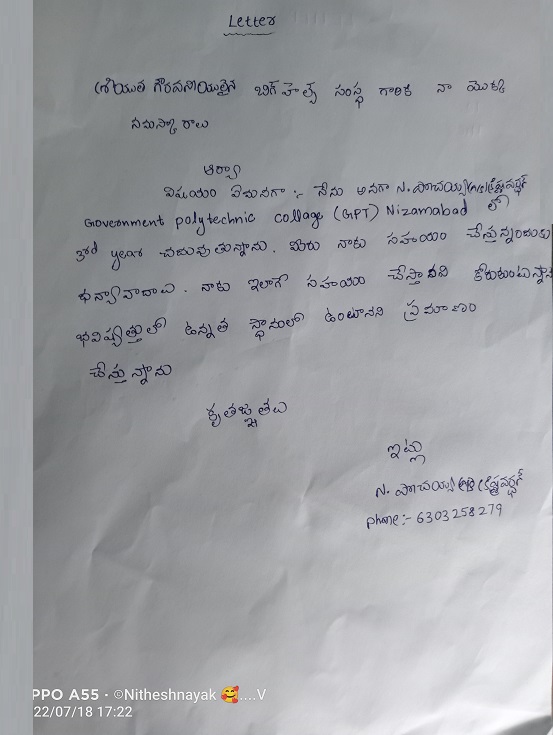 Letter
శ్రీయుత గౌరవనీయులైన బిగ్ హెల్ప్ సంస్థ గారికి నా యొక్క
నమస్కారాలు
ఆర్యా
విషయం ఏమనగా :- నేను అనగా N. పోచయ్య
Government polytechnic collage (GPT) Nizamabad లో
3rd year చదువుతున్నాను. మీరు నాకు సహాయం చేస్తున్నందుకు
ధన్యావాదాలు. నాకు ఇలాగే సహాయం చేస్తారని కోరుకుంటున్నాను
భవిష్యత్తులో ఉన్నత స్థానంలో ఉంటానని ప్రమాణం
చేస్తున్నాను
కృతజ్ఞతలు
ఇట్లు
N. పోచయ్య
phone:- 6303258279
PPO A55 · ©Nitheshnayak 🥰....V
22/07/18 17:22